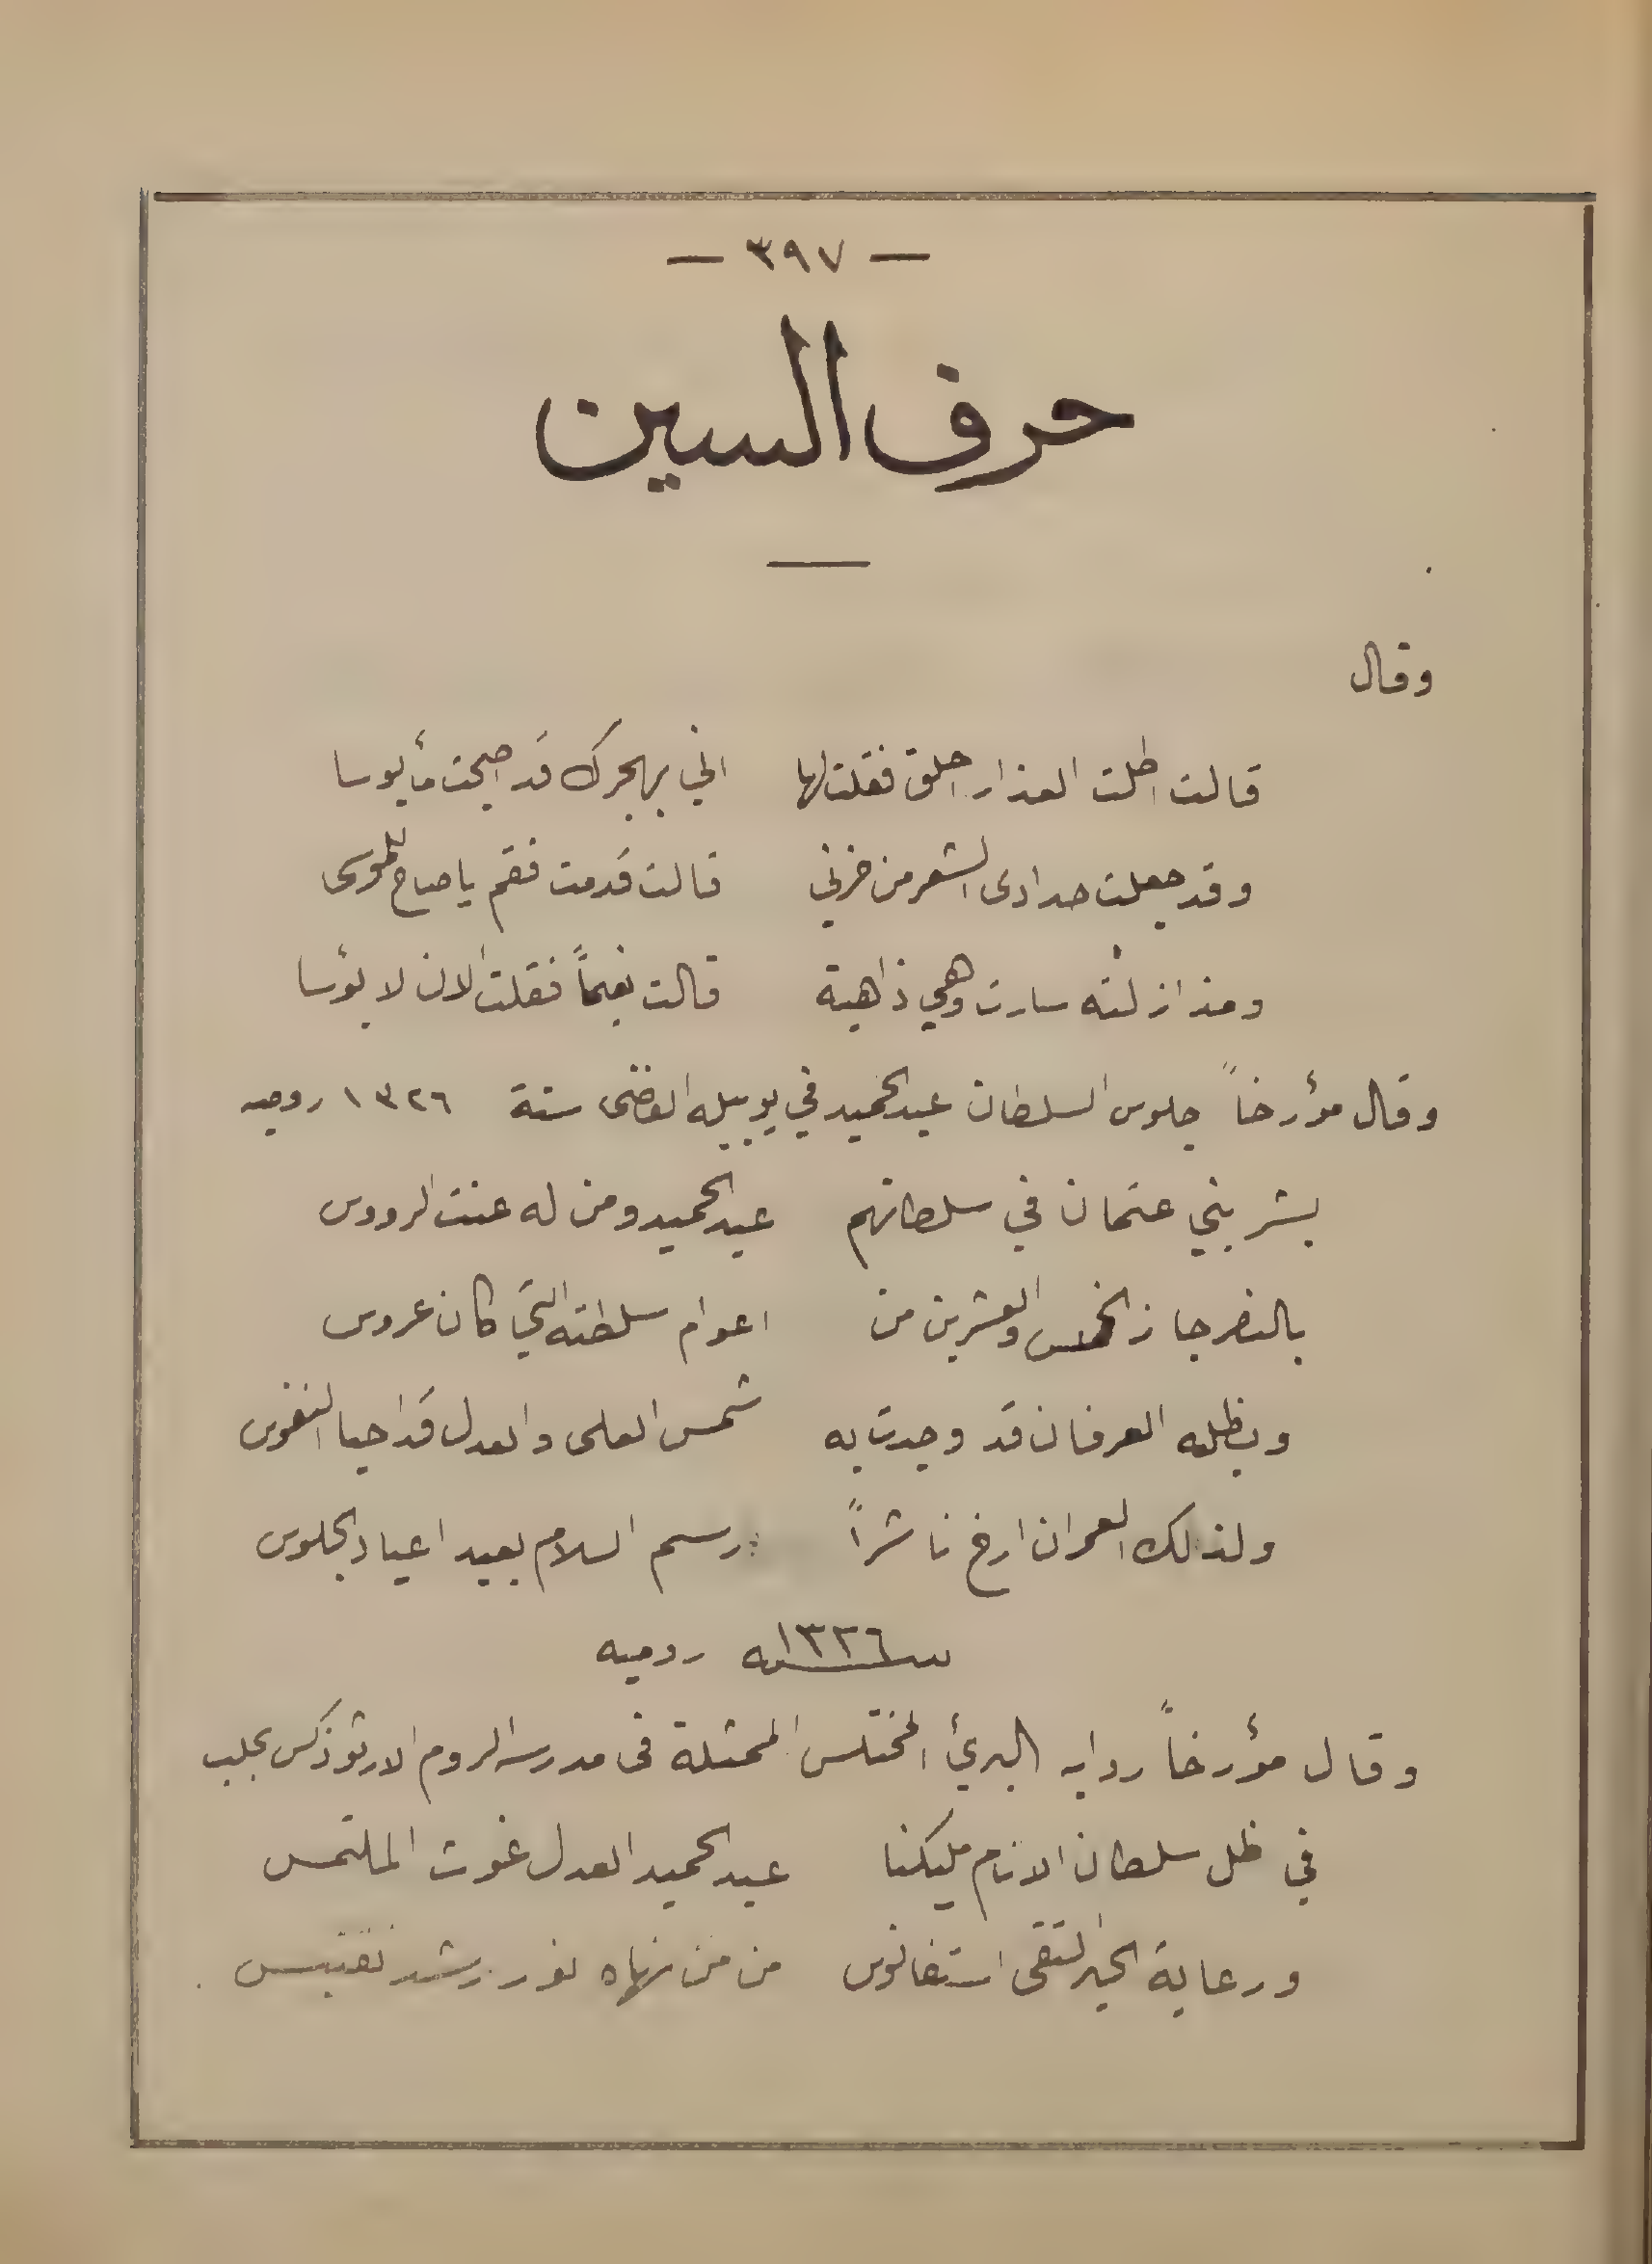 — ٣٩٧ —
حرف السين
وقال
قالت اطلت العذار احلق فقلت لها    اني بهجرك قد اصبحت مأيوسا
وقد جعلت حدادى الشعر من حزني    قالت قدمت فقم يا صاح للموسى
ومذ ازلته سارت وهي ذاهبة    قالت نعيماً فقلت الان لا بؤسا
وقال مؤرخاً جلوس السلطان عبد الحميد في يوبيله الفضى سنة ١٣٢٦ روميه
بشر بني عثمان في سلطانهم    عبد الحميد ومن له عنت الرووس
بالنصر جاز الخمس والعشرين من    اعوام سلطنته التي كان عروس
وبظله العرفان قد وجدت به    شمس العلى والعدل قد احيا النفوس
ولذلك العمران ارخ ناشراً    رسم السلام بعيد اعياد الجلوس
سنه ١٣٢٦ روميه
وقال مؤرخاً روايه البرئ المختلس الممثلة فى مدرسه الروم الارثوذكس بحلب
في ظل سلطان الانام مليكنا    عبد الحميد العدل غوث الملتمس
ورعاية الحبر التقى استفانوس    من من نهاه نور رشد نقتبس